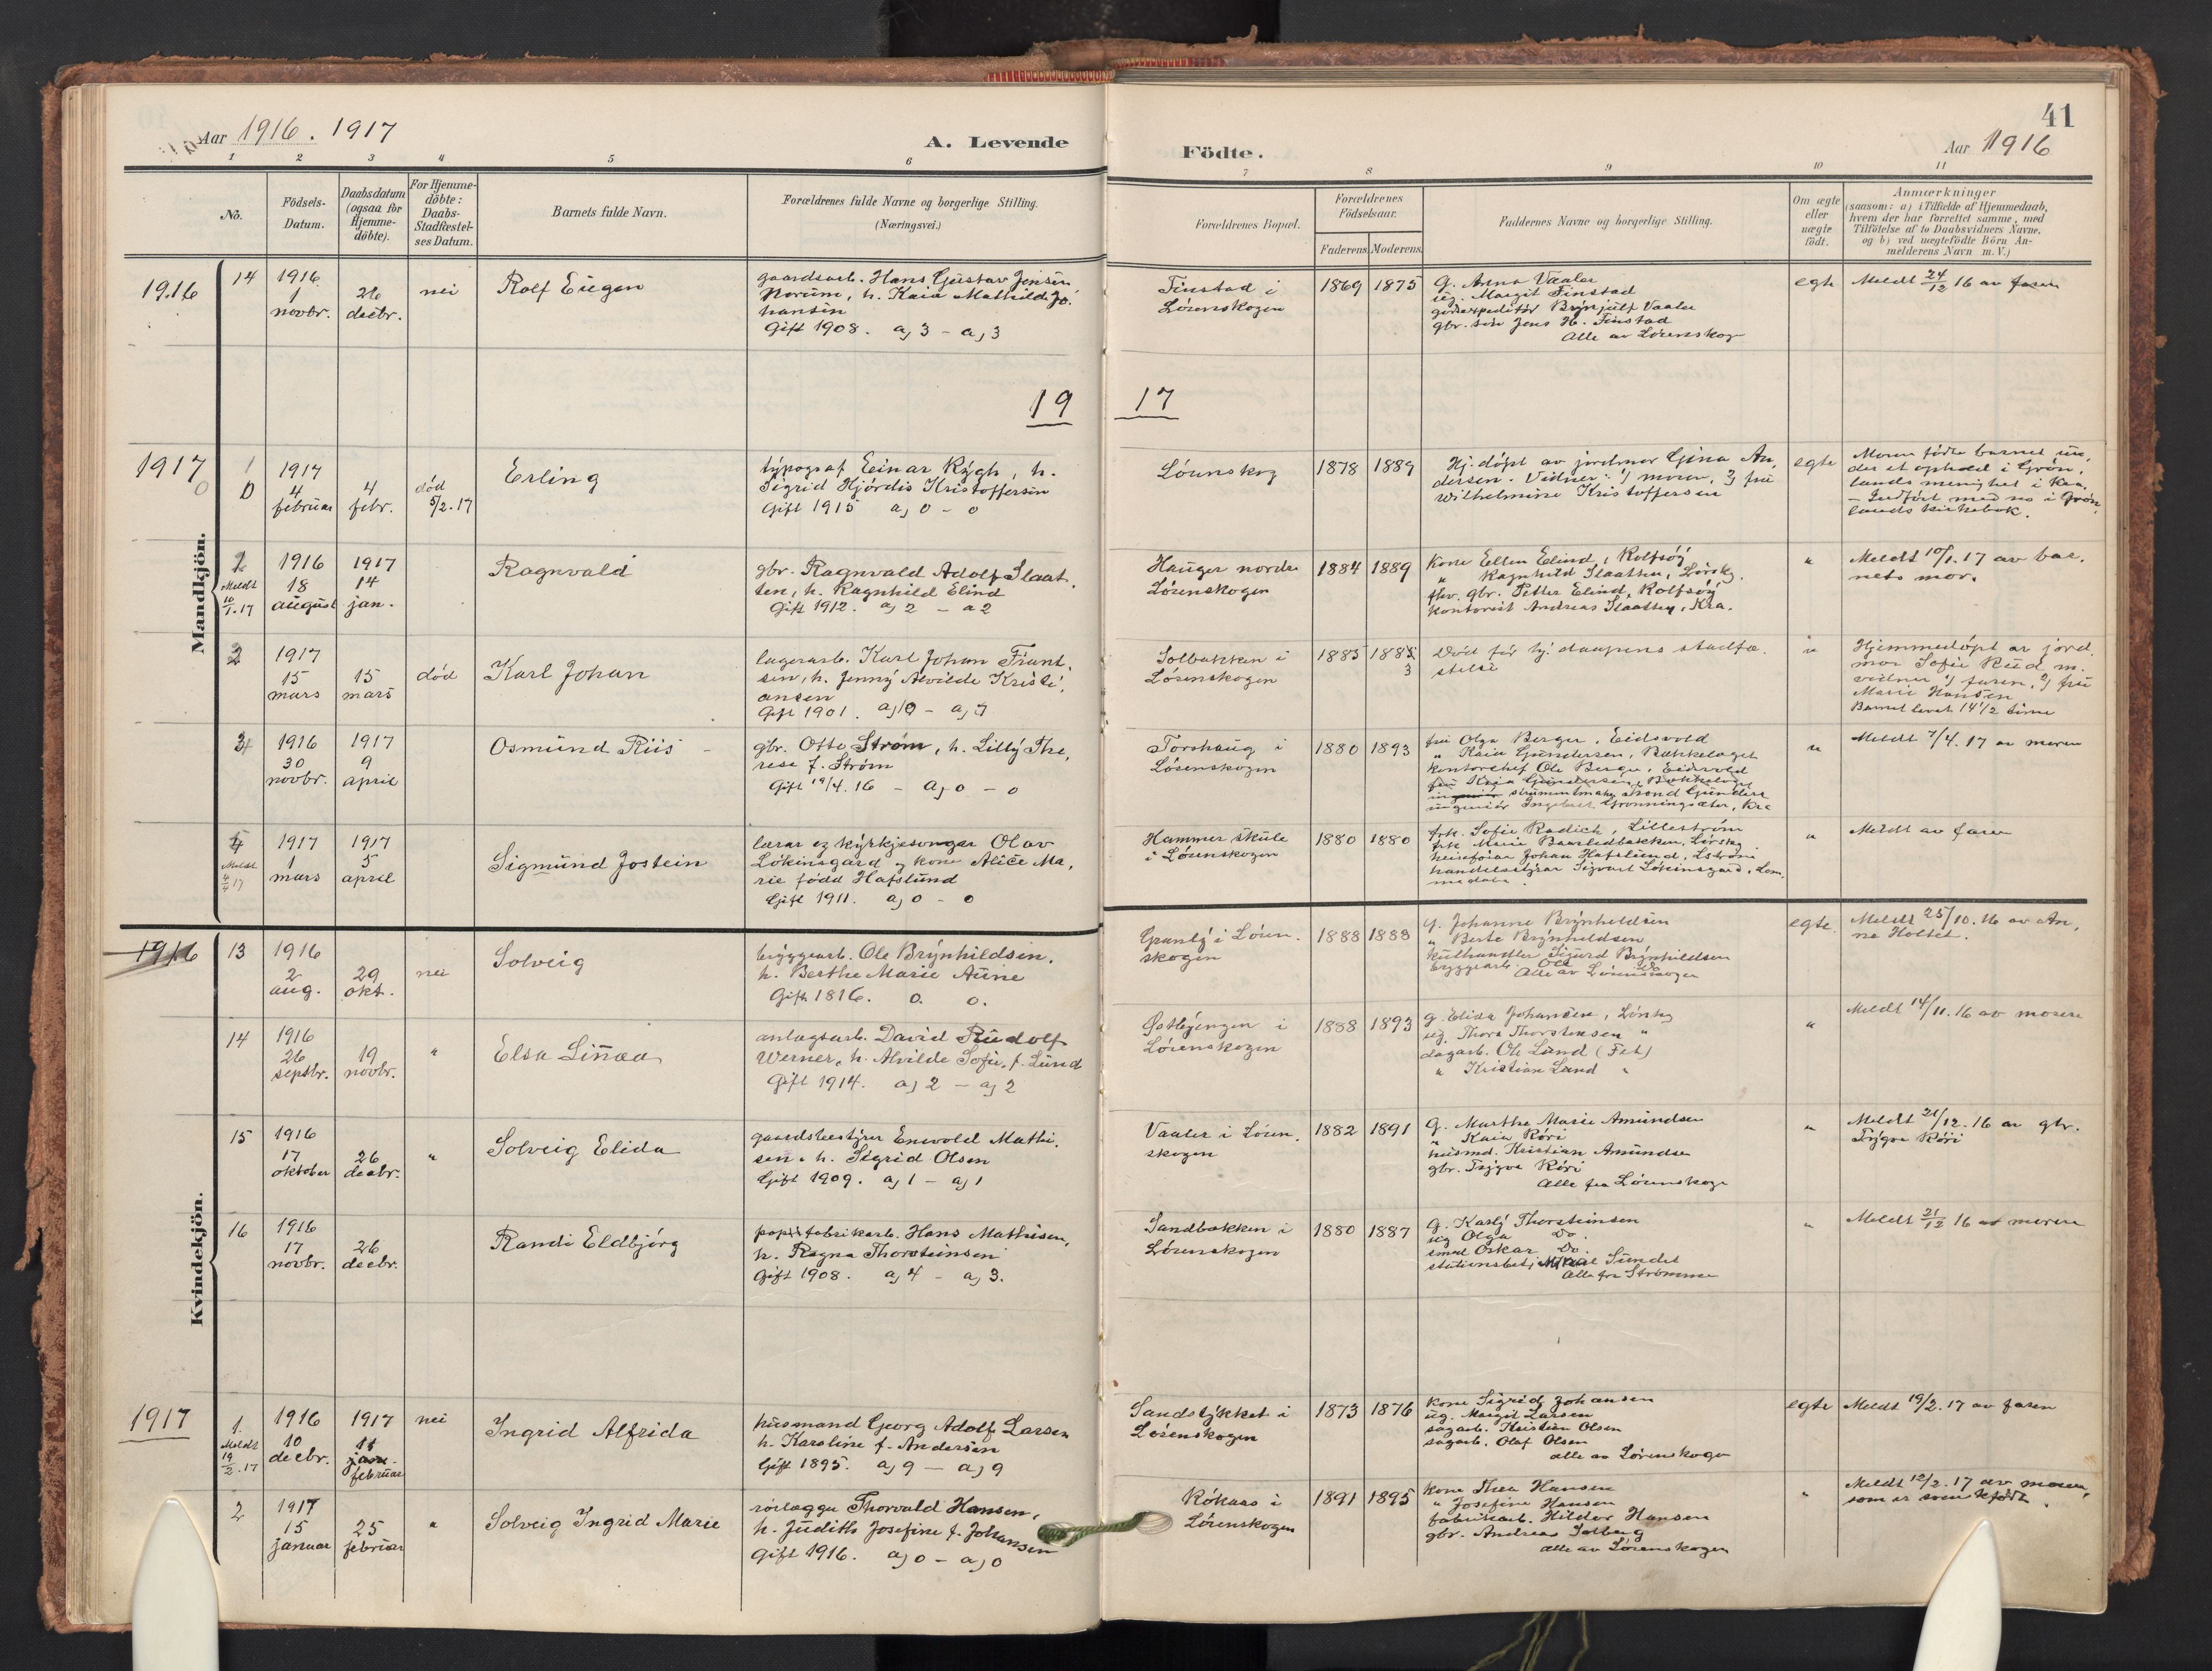 41
Aar 1916. 1917
A. Levende
Födte.
Aar 1916
1 2 3 4 5 6 7 8 9 10 11
No.
Födsels-
Datum.
Daabsdatum
(ogsaa for
Hjemme-
döbte).
For Hjemme-
döbte:
Daabs-
Stadfæstel-
ses Datum.
Barnets fulde Navn.
Forældrenes fulde Navne og borgerlige Stilling.
(Næringsvei.)
Forældrenes Bopæl.
Forældrenes
Födselsaar.
Faderens. Moderens.
Faddernes Navne og borgerlige Stilling.
Om ægte
eller
uægte
födt.
Anmærkninger
(saasom: a) i Tilfælde af Hjemmedaab,
hvem der har forrettet samme, med
Tilföielse af to Daabsvidners Navne,
og b) ved uægtefödte Börn An-
melderens Navn m. V.)
Mandkjön.
1916
14
1916
1
novbr.
26
decbr.
nei
Rolf Eugen
gaardsarb. Hans Gustav Jensen
Norum, h. Kaia Mathilde Jo-
hansen
Gift 1908. a) 3 - a) 3
Finstad i
Lørenskogen
1869 1875
G. Anna Vaaler
ug. Margit Finstad
godsexpeditør Brynjulf Vaaler
gbr. søn Jens H. Finstad
Alle av Lørenskog
egte
Meldt 24/12 16 av faren
19 17
1917
0
1
1917
4
februar
4
febr.
død
5/2.17
Erling
typograf Einar Rygh, h.
Sigrid Hjørdis Kristoffersen
Gift 1915 a) 0 - 0
Lørenskog
1878 1889
Hj. døpt av jordmor Gina An-
dersen. Vidner: 1) moren, 2) fru
Wilhelmine Kristoffersen
egte
Moren fødte barnet un-
der et ophold i Grøn-
lands menighet i Kra.
- Indført med no i Grøn-
lands kirkebok.
Meldt
10/1.17
1916
18
august
1917
14
jan.
Ragnvald
gbr. Ragnvald Adolf Slaat-
ten, h. Ragnhild Elind
Gift 1912. a) 2 - a 2
Hauger nordre
Lørenskogen
1884 1889
Kone Ellen Elind, Rolfsøy
" Ragnhild Slaatten, Lørskg.
fhv. gbr. Petter Elind, Rolfsøy
Kontorist Andreas Slaatten, Kra.
"
Meldt 10/1.17 av bar-
nets mor.
1917
15
mars
15
mars
død
Karl Johan
lagerarb. Karl Johan Frant-
sen, h. Jenny Alvilde Kristi-
ansen
Gift 1901.
Solbakken i
Lørenskogen
1885
3
Død før hj. daapens stadfæ-
stelse
"
Hjemmedøpt av jord-
mor Sofie Ruud m.
vidner 1) faren, 2) fru
Marie Hansen
Barnet levet 14 1/2 time
1916
30
novbr.
1917
9
april
Osmund Riis
gbr. Otto Strøm, h. Lilly The-
rese f. Strøm
Gift 19/4.16 - a) 0 - 0
Torshaug i
Lørenskogen
1880 1893
fru Olga Berger, Eidsvold
" Kaia Gundersen, Bækkelaget
Kontorchef Ole Berger, Eidsvold
ingeniør Ingebret Grønningsæter, Kra
"
Meldt 7/4.17 av moren
Meldt
4/4 17
1917
1
mars
1917
5
april
Sigmund Jostein
lærar og kyrkjesongar Olav
Løkinsgard og kone Alice Ma-
rie fødd Hafslund
Gift 1911. a) 0 - 0
Hammer skule
i Lørenskogen
1880 1880
frk. Sofie Radich, Lillestrøm
frk. Marie Baarlidbakken, Lørskg.
heisefører Johan Hafslund, Lstrøm
handelsstyrar Sigvart Løkinsgard, Lom-
medalen.
"
Meldt av faren
Kvindekjön.
1916
13
1916
2
aug.
29
okt.
nei
Solveig
byggearb. Ole Brynhildsen,
h. Berthe Marie Aune
Gift 1816. 0. 0.
Granly i Løren-
skogen
1888 1888
G. Johanne Brynhildsen
" Berte Brynhildsen
kulhandler Sigurd Brynhildsen
byggearb. Ole Do
Alle av Lørenskogen
egte.
Meldt 25/10.16 av An-
ne Holtet.
14
1916
26
septbr.
19
novbr.
"
Elsa Linnea
anlagsarb. David Rudolf
Werner, h. Alvilde Sofie, f. Lund
Gift 1914. a) 2 - a) 2
Østbyengen i
Lørenskogen
1888 1893
G. Elida Johansen, Lørskg
ug. Thora Thorstensen "
dagarb. Ole Lund (Fet)
" Kristian Lund "
"
Meldt 14/11.16 av moren
15
1916
17
oktober
26
decbr.
"
Solveig Elida
gaardsbestyrer Enevold Mathi-
sen, h. Sigrid Olsen
Gift 1909. a) 1 - a) 1
Vaaler i Løren-
skogen
1882 1891
G. Marthe Marie Amundsen
" Kaia Røri
husmd. Kristian Amundsen
gbr. Trygve Røri
Alle fra Lørenskogen
"
Meldt 21/12.16 av gbr.
Trygve Røri
16
1916
17
novbr.
26
decbr.
Randi Eldbjørg
papirfabrikarb. Hans Mathisen,
h. Ragna Thorsteinsen
Gift 1908. a) 4 - a) 3.
Sandbakken i
Lørenskogen
1880 1887
G. Karly Thorsteinsen
ug Olga Do.
smed Oskar Do.
stationsbetj. Mikal Sundet
Alle fra Strømmen
"
Meldt 21/12 16 av moren
1917
1.
Meldt
19/2.17
1916
10
decbr.
1917
11
februar
nei
Ingrid Alfrida
husmand Georg Adolf Larsen
h. Karoline f. Andersen
Gift 1895. a) 9 - a) 9
Sandstykket i
Lørenskogen
1873 1876
Kone Sigrid Johansen
ug. Margit Larsen
sagarb. Kristian Olsen
sagarb. Olaf Olsen
alle av Lørenskogen
egte
Meldt 19/2.17 av faren
2
1917
15
januar
25
februar
"
Solveig Ingrid Marie
rørlægger Thorvald Hansen,
h. Judith Josefine f. Johansen
Gift 1916. a) 0 - a) 0
Røkaas i
Lørenskogen
1891 1895
Kone Thea Hansen
" Josefine Hansen
fabrikarb. Hildor Hansen
gbr. Andreas Solberg
alle av Lørenskogen
"
Meldt 12/2.17 av moren,
som er svenskfødt.